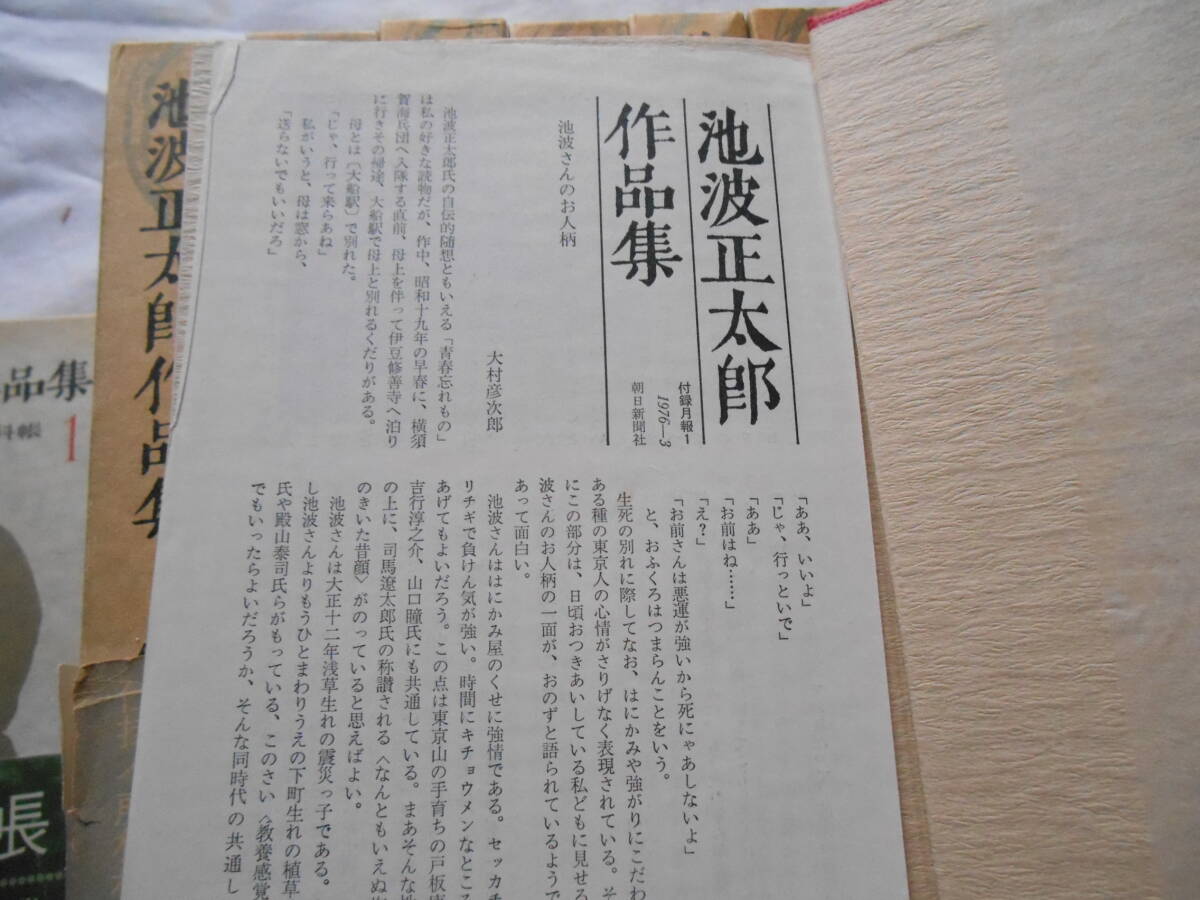 池波正太郎
作品集
付録月報1
1976―3
朝日新聞社
池波さんのお人柄
大村彦次郎
池波正太郎氏の自伝的随想ともいえる「青春忘れもの」
は私の好きな読物だが、作中、昭和十九年の早春に、横須
賀海兵団へ入隊する直前、母上を伴って伊豆修善寺へ泊り
に行きその帰途、大船駅で母上と別れるくだりがある。
母とは〔大船駅〕で別れた。
「じゃ、行って来らあね」
私がいうと、母は窓から、
「送らないでもいいだろ」
「ああ、いいよ」
「じゃ、行っといで」
「ああ」
「お前はね……」
「え?」
「お前さんは悪運が強いから死にゃあしないよ」
と、おふくろはつまらんことをいう。
生死の別れに際してなお、はにかみや強がりにこだわ
ある種の東京人の心情がさりげなく表現されている。そ
にこの部分は、日頃おつきあいしている私どもに見せる
波さんのお人柄の一面が、おのずと語られているようで
あって面白い。
池波さんははにかみ屋のくせに強情である。セッカチ
リチギで負けん気が強い。時間にキチョウメンなところ
あげてもよいだろう。この点は東京山の手育ちの戸板康
吉行淳之介、山口瞳氏にも共通している。まあそんな
の上に、司馬遼太郎氏の称讃される〈なんともいえぬ
のきいた昔顔〉がのっていると思えばよい。
池波さんは大正十二年浅草生れの震災っ子である。
し池波さんよりもうひとまわりうえの下町生れの植草
氏や殿山泰司氏らがもっている、このさい〈教養感覚
でもいったらよいだろうか、そんな同時代の共通し
池波正太郎作品集
品集
科帳
1
帳